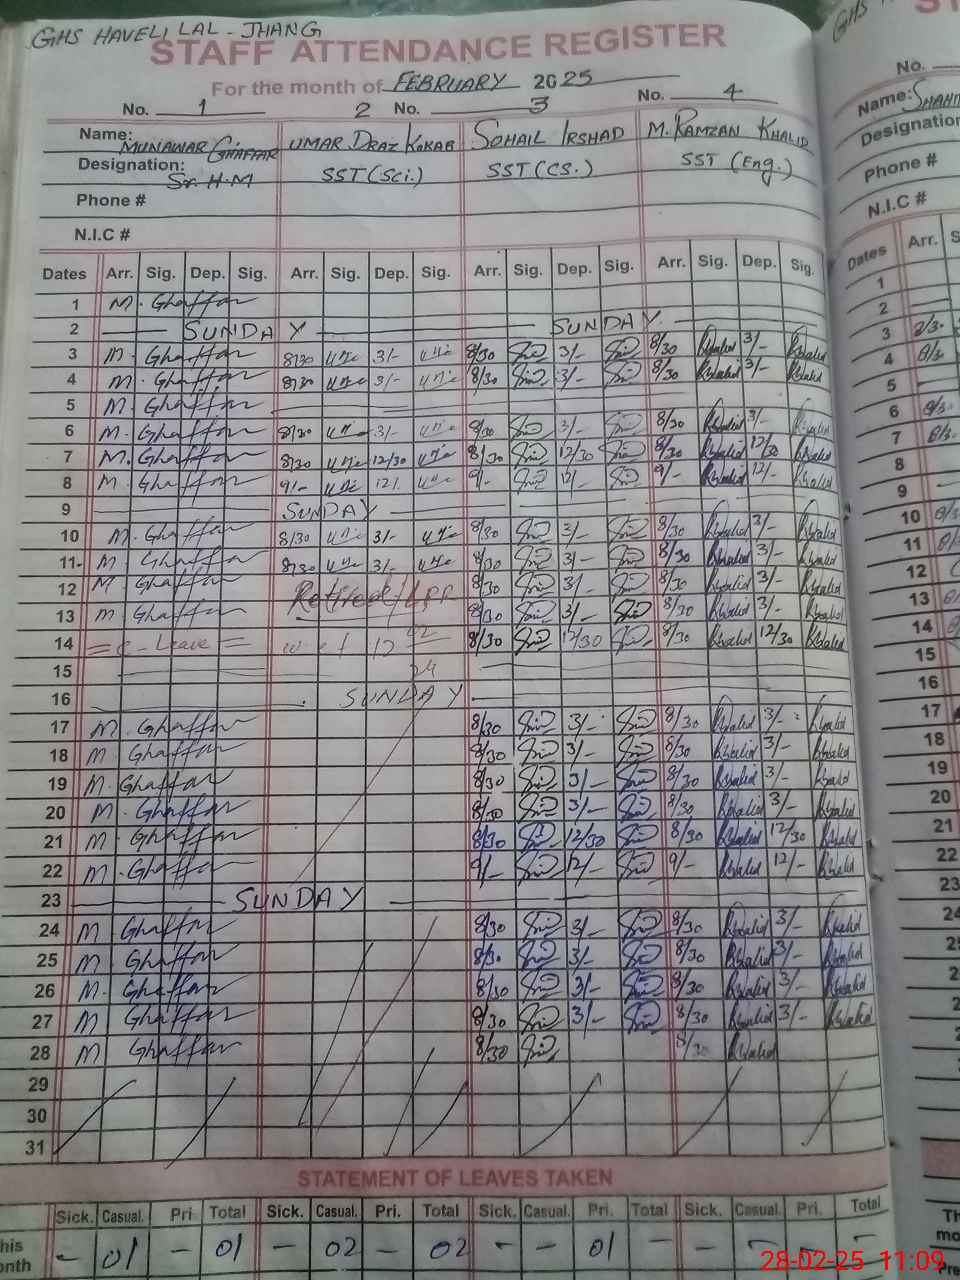 GHS HAVELI LAL - JHANG
STAFF ATTENDANCE REGISTER
For the month of FEBRUARY 2025
No. 1 2 No. 3 No. 4
Name: MUNAWAR GHAFFAR UMAR DRAZ KOKAB SOHAIL IRSHAD M. RAMZAN KHALID
Designation: Sr. H.M SST (Sci.) SST (CS.) SST (Eng.)
Phone #
N.I.C #
Dates Arr. Sig. Dep. Sig. Arr. Sig. Dep. Sig. Arr. Sig. Dep. Sig. Arr. Sig. Dep. Sig.
1 M. Ghaffar
2 SUNDAY SUNDAY
3 M. Ghaffar 8/30 3/- 8/30 3/- 8/30 Khalid 3/- Khalid
4 M. Ghaffar 8/30 3/- 8/30 3/- 8/30 Khalid 3/- Khalid
5 M. Ghaffar
6 M. Ghaffar 8/30 3/- 8/30 3/- 8/30 Khalid 3/- Khalid
7 M. Ghaffar 8/30 12/30 8/30 12/30 8/30 Khalid 12/30 Khalid
8 M. Ghaffar 9/- 12/- 9/- 12/- 9/- Khalid 12/- Khalid
9 SUNDAY
10 M. Ghaffar 8/30 3/- 8/30 3/- 8/30 Khalid 3/- Khalid
11 M. Ghaffar 8/30 3/- 8/30 3/- 8/30 Khalid 3/- Khalid
12 M. Ghaffar Retired/LPR 8/30 3/- 8/30 Khalid 3/- Khalid
13 M. Ghaffar 8/30 3/- 8/30 Khalid 3/- Khalid
14 = C-Leave = w e f 12 8/30 12/30 8/30 Khalid 12/30 Khalid
15
16 SUNDAY
17 M. Ghaffar 8/30 3/- 8/30 Khalid 3/- Khalid
18 M. Ghaffar 8/30 3/- 8/30 Khalid 3/- Khalid
19 M. Ghaffar 8/30 3/- 8/30 Khalid 3/- Khalid
20 M. Ghaffar 8/30 3/- 8/30 Khalid 3/- Khalid
21 M. Ghaffar 8/30 12/30 8/30 Khalid 12/30 Khalid
22 M. Ghaffar 9/- 12/- 9/- Khalid 12/- Khalid
23 SUNDAY
24 M Ghaffar 8/30 3/- 8/30 Khalid 3/- Khalid
25 M Ghaffar 8/30 3/- 8/30 Khalid 3/- Khalid
26 M. Ghaffar 8/30 3/- 8/30 Khalid 3/- Khalid
27 M Ghaffar 8/30 3/- 8/30 Khalid 3/- Khalid
28 M Ghaffar 8/30 8/30 Khalid
29
30
31
STATEMENT OF LEAVES TAKEN
Sick. Casual. Pri Total Sick. Casual. Pri. Total Sick. Casual. Pri. Total Sick. Casual. Pri. Total
his onth - 01 - 01 - 02 - 02 - - 01 - - - -
28-02-25 11:09
GHS
ST
No.
Name: SHAH
Designation
Phone #
N.I.C #
Dates Arr. S
1
2
3
4 8/30
5
6 8/3
7 8/3
8
9
10 8/3
11
12
13
14
15
16
17
18
19
20
21
22
23
24
25